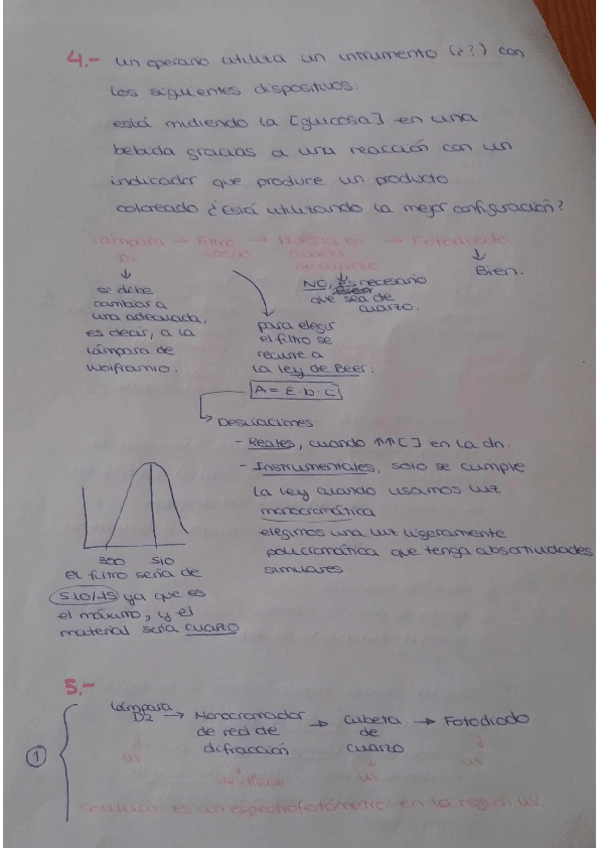 4.- un operario utiliza un intrumento (¿?) con
los siguientes dispositivos.
está midiendo la [glucosa] en una
bebida gracias a una reacción con un
indicador que produce un producto
coloreado ¿Está utilizando la mejor configuración?
Lámpara → Filtro → Muestra en → Fotodiodo
D2 cubeta
cuarzo
↓
Bien.
↓
se debe
cambiar a
una adecuada,
es decir, a la
lámpara de
Wolframio.
NO, Es necesario
que sea de
cuarzo.
para elegir
el filtro se
recurre a
la ley de Beer.
A = ε·b·c
Desviaciones:
- Reales, cuando ↑↑[C] en la dn.
- Instrumentales, solo se cumple
la ley cuando usamos luz
monocromática
elegimos una luz ligeramente
policromática que tenga absortividades
similares
300 510
el filtro sería de
510/15 ya que es
el máximo, y el
material sería cuarzo
5.-
① Lámpara D2 → Monocromador de red de difracción → cubeta de cuarzo → Fotodiodo
UV UV-visible UV UV
Solución es un espectrofotómetro en la región UV.